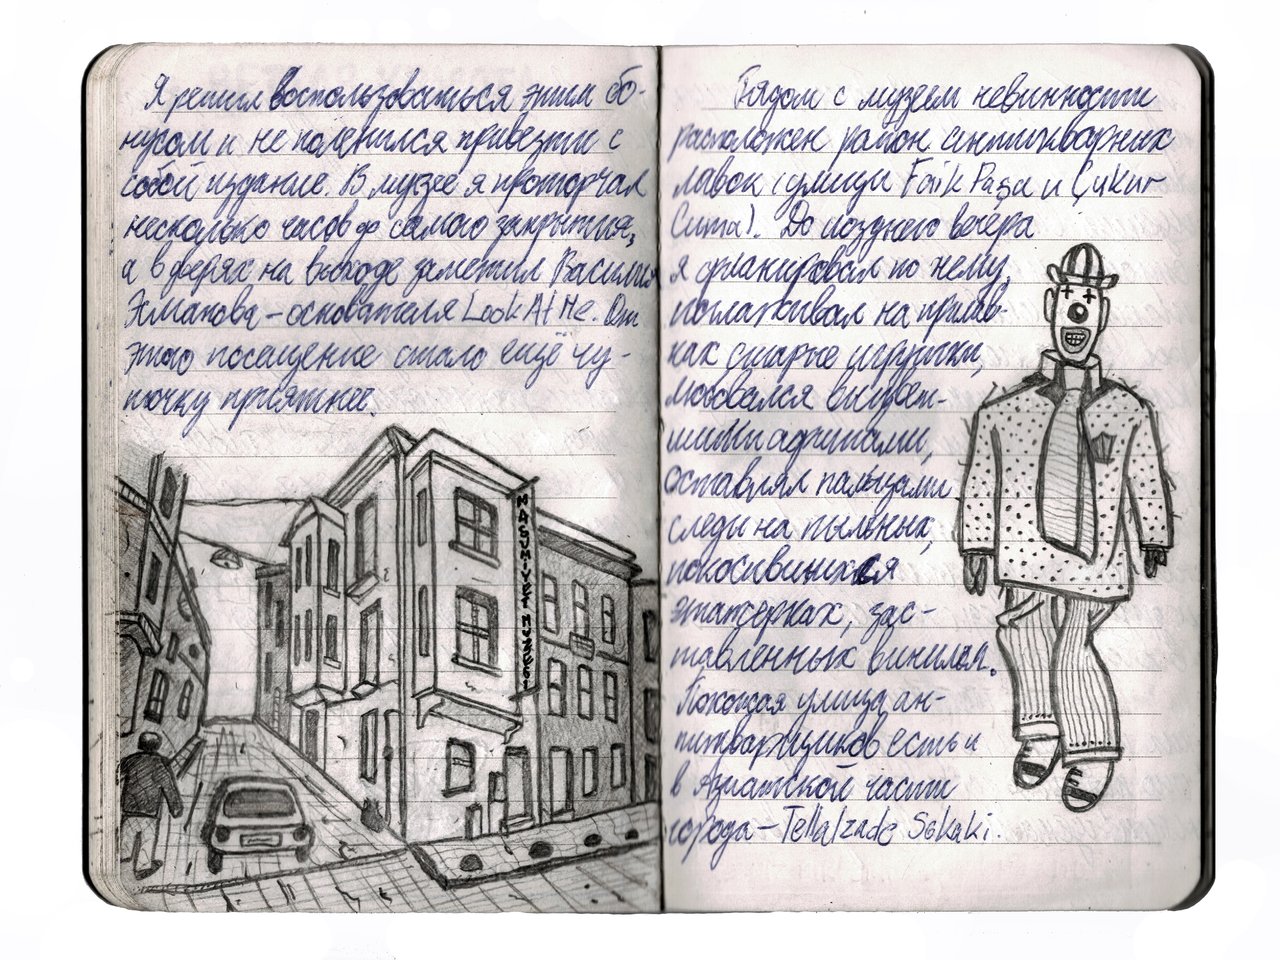 Я решил воспользоваться этим бо-
нусом и не поленился привезти с
собой издание. В музее я проторчал
несколько часов до самого закрытия,
а в дверях на выходе заметил Василия
Эсманова – основателя Look At Me. От
этого посещение стало ещё чу-
точку приятнее.
MASUMİYET MÜZESİ
Рядом с музеем невинности
расположен район антикварных
лавок (улицы Faik Paşa и Çukur
Cuma). До позднего вечера
я фланировал по нему,
поглаживал на прилав-
ках старые игрушки,
любовался выцвет-
шими афишами,
оставлял пальцами
следы на пыльных,
покосившихся
этажерках, зас-
тавленных винилом.
Похожая улица ан-
тикварщиков есть и
в Азиатской части
города – Tellalzade Sokaki.